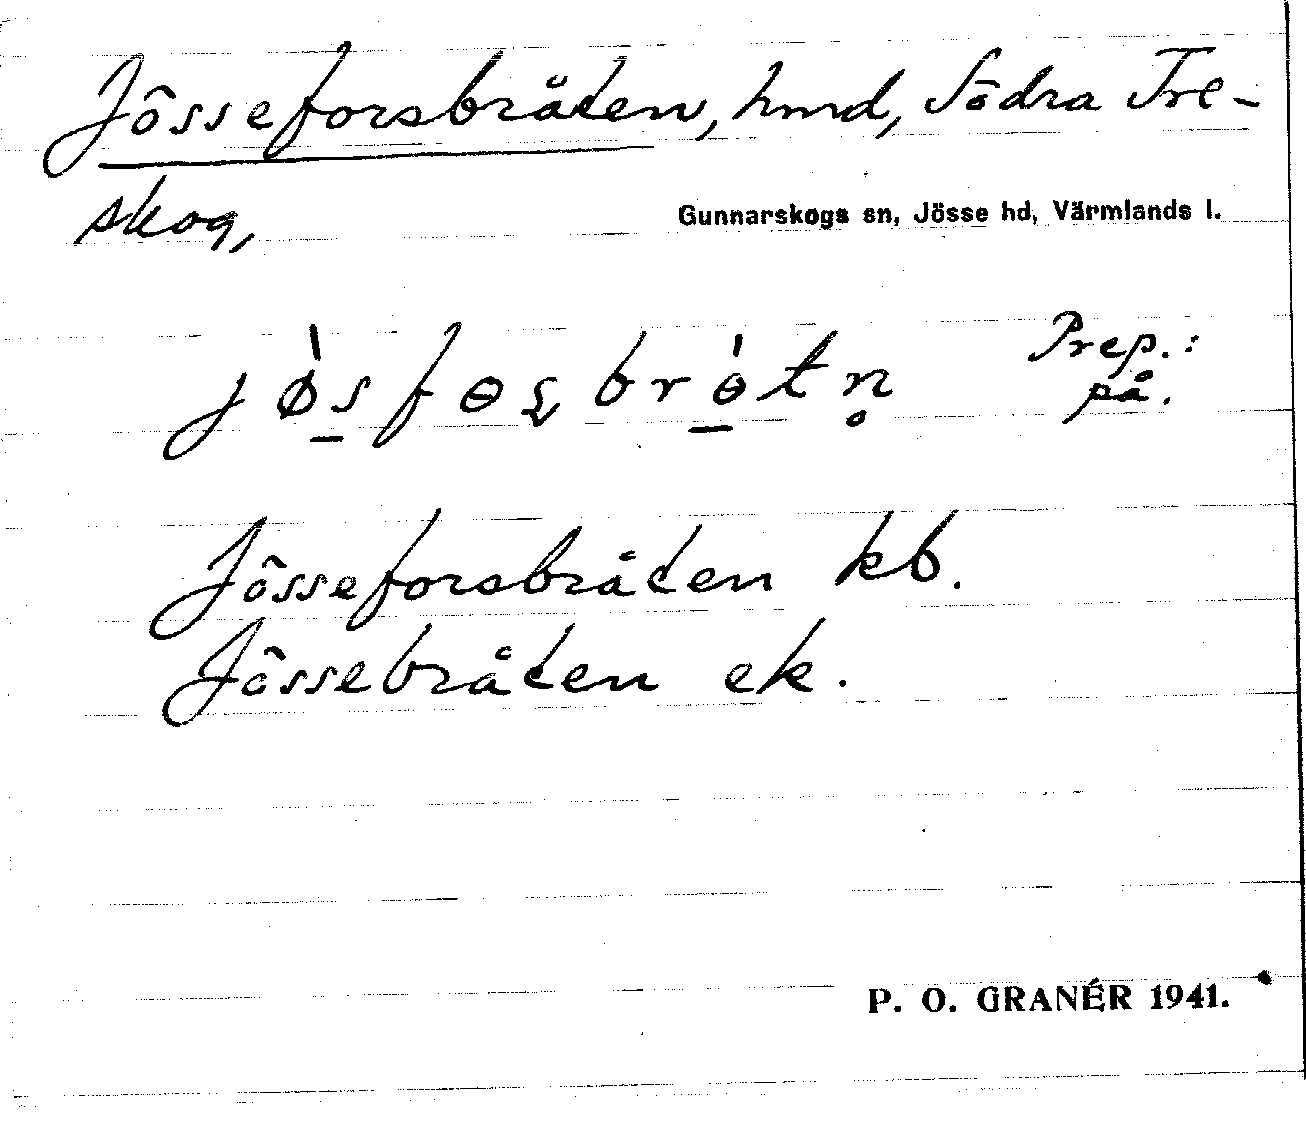 Jösseforsbråten, hmd, Södra Tre-
skog,
Gunnarskogs sn, Jösse hd, Värmlands l.
Prep.:
på.
Jösseforsbråten kb.
Jössebråten ek.
P. O. GRANÉR 1941.